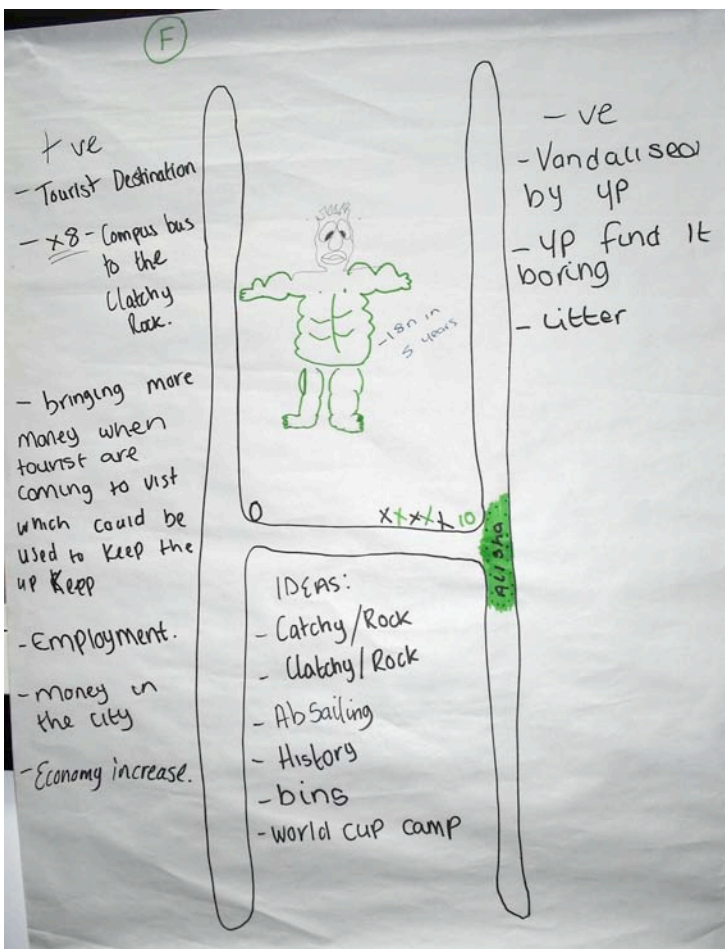 F
+ve
- Tourist Destination
- x8 - Compus bus
to the
Clatchy
Rock.
- bringing more
money when
tourist are
coming to vist
which could be
used to keep the
up keep
- Employment.
- Money in
the city
- Economy increase.
- 18n in
5 years
O xxxxx 10
Alisha
IDEAS:
- Catchy/Rock
- Clatchy/Rock
- AbSailing
- History
- bins
- world cup camp
- ve
- Vandalised
by YP
- YP find it
boring
- Litter